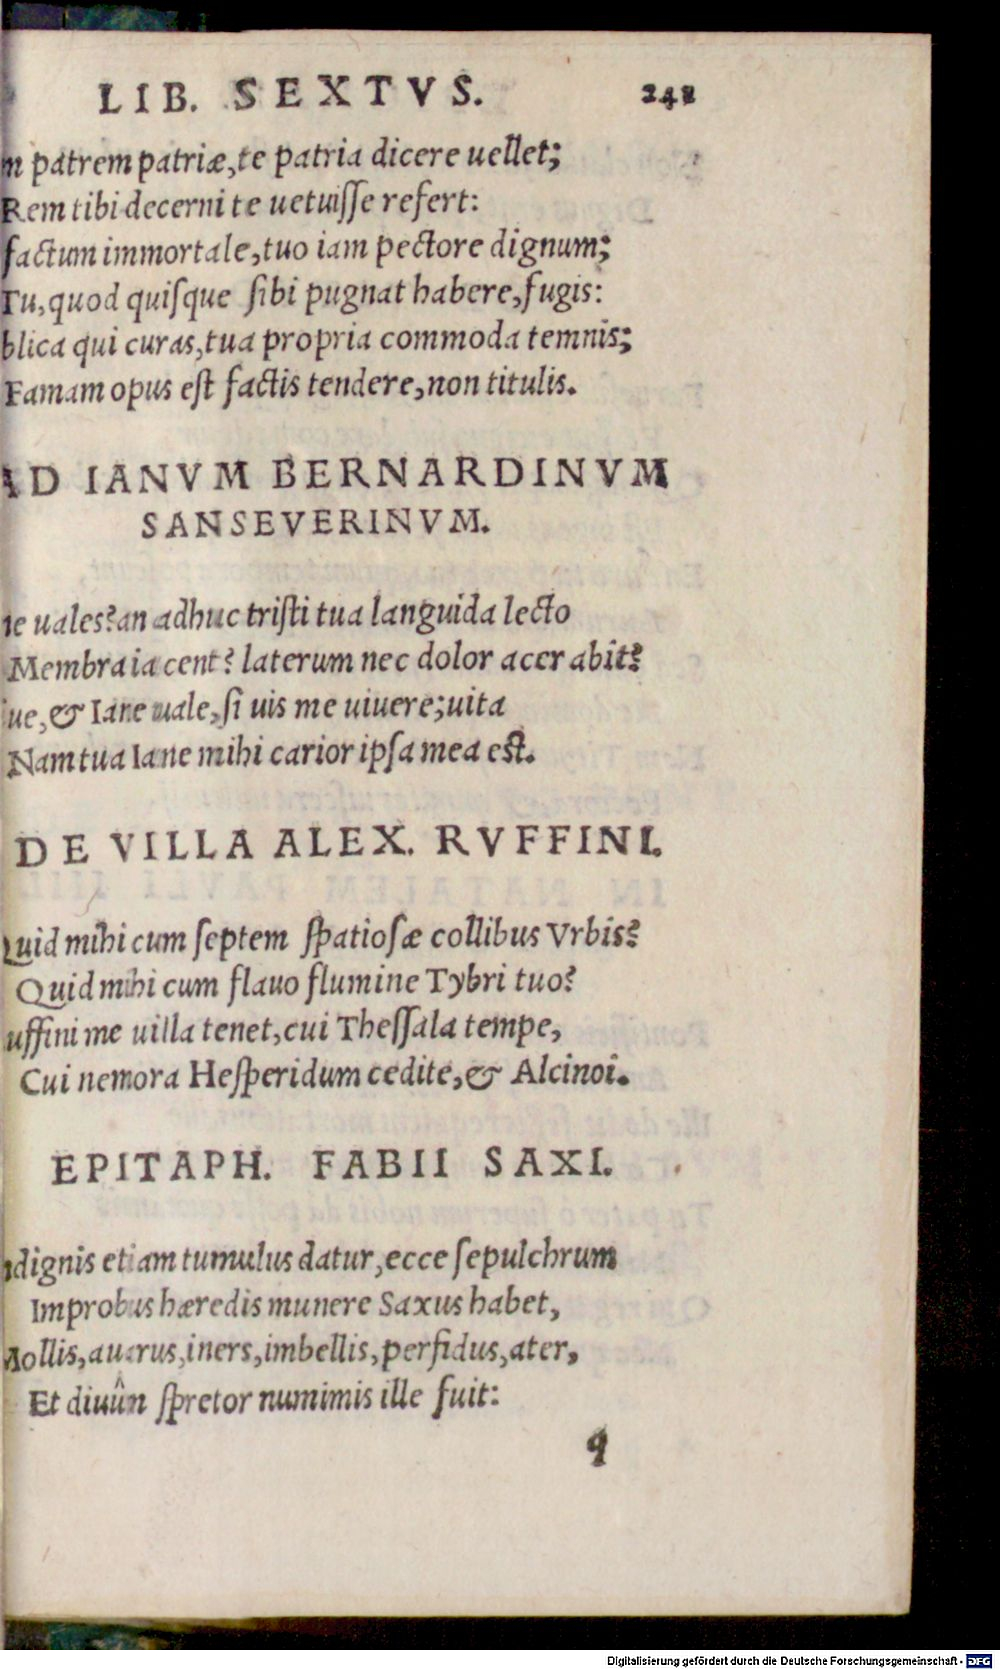 LIB. SEXTVS. 242
patrem patriæ, te patria dicere uellet;
Rem tibi decerni te uetuiſſe refert:
factum immortale, tuo iam pectore dignum;
Tu, quod quiſque ſibi pugnat habere, fugis:
blica qui curas, tua propria commoda temnis;
Famam opus eſt factis tendere, non titulis.
AD IANVM BERNARDINVM
SANSEVERINVM.
uales? an adhuc triſti tua languida lecto
Membra iacent? laterum nec dolor acer abit?
ue, & Iane uale, ſi uis me uiuere; uita
Nam tua Iane mihi carior ipſa mea eſt.
DE VILLA ALEX. RVFFINI.
Quid mihi cum ſeptem ſpatioſæ collibus Vrbis?
Quid mihi cum flauo flumine Tybri tuo?
uffini me uilla tenet, cui Theſſala tempe,
Cui nemora Heſperidum cedite, & Alcinoi.
EPITAPH. FABII SAXI.
dignis etiam tumulus datur, ecce ſepulchrum
Improbus hæredis munere Saxus habet,
Mollis, auarus, iners, imbellis, perfidus, ater,
Et diuûn ſpretor numimis ille fuit:
q
Digitalisierung gefördert durch die Deutsche Forschungsgemeinschaft - DFG